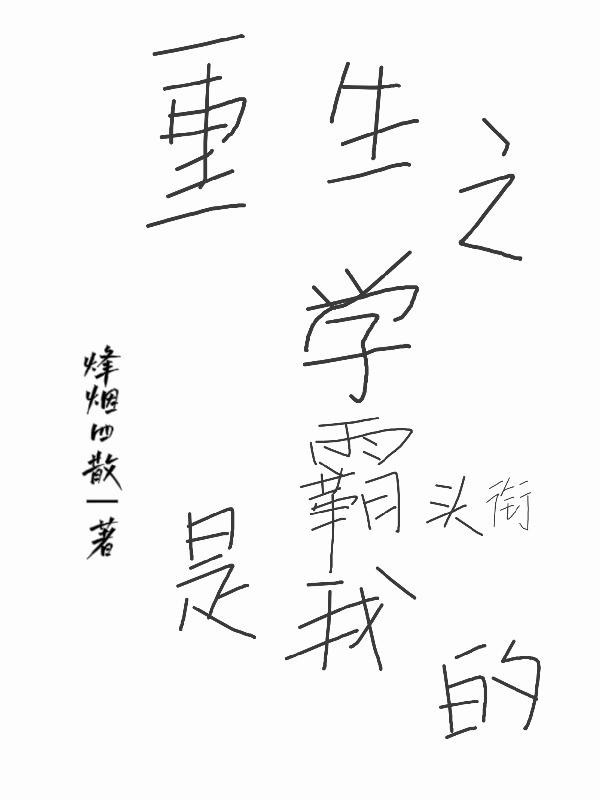 重生之
学霸头衔
是我的
烽烟四散一著